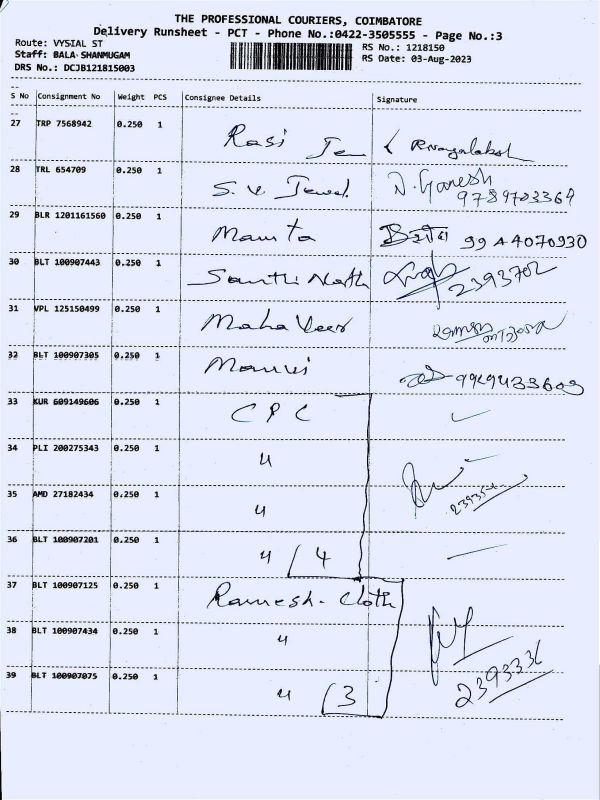 THE PROFESSIONAL COURIERS, COIMBATORE
Delivery Runsheet - PCT - Phone No.:0422-3505555 - Page No.:3
Route: VYSIAL ST
RS No.: 1218150
Staff: BALA SHANMUGAM
RS Date: 03-Aug-2023
DRS No.: DCJB121815003
S No Consignment No Weight PCS Consignee Details Signature
27 TRP 7568942 0.250 1 Rasi
28 TRL 654709 0.250 1 S. V. Jewel N. Ganesh
9789703364
29 BLR 1201161560 0.250 1 Mamta 9944070930
30 BLT 100907443 0.250 1 Santhi Nath 2393702
31 VPL 125150499 0.250 1 Maha Veer
32 BLT 100907305 0.250 1
33 KUR 609149606 0.250 1 C P C
34 PLI 200275343 0.250 1 "
35 AMD 27182434 0.250 1 "
36 BLT 100907201 0.250 1 " / 4
37 BLT 100907125 0.250 1 Ramesh. Cloth
38 BLT 100907434 0.250 1 "
39 BLT 100907075 0.250 1 " / 3